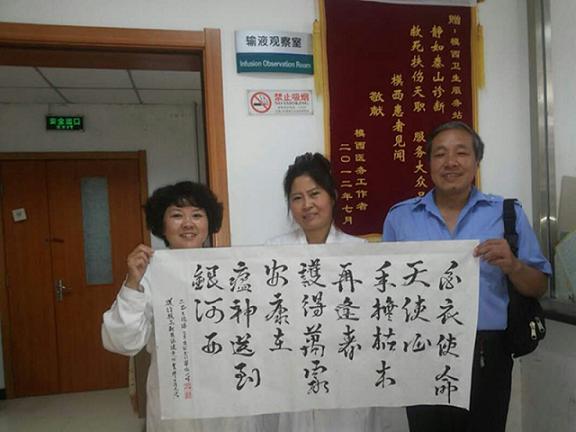 输液观察室
Infusion Observation Room
禁止吸烟
NO SMOKING
安全出口
赠：模西卫生服务站
静如泰山诊断
救死扶伤天职 服务大众
模西患者见闻
敬献
模西医务工作者
二〇一二年七月
白衣使命
天使心
手擔枯木
再逢春
護得萬家
安康在
瘟神送到
銀河西